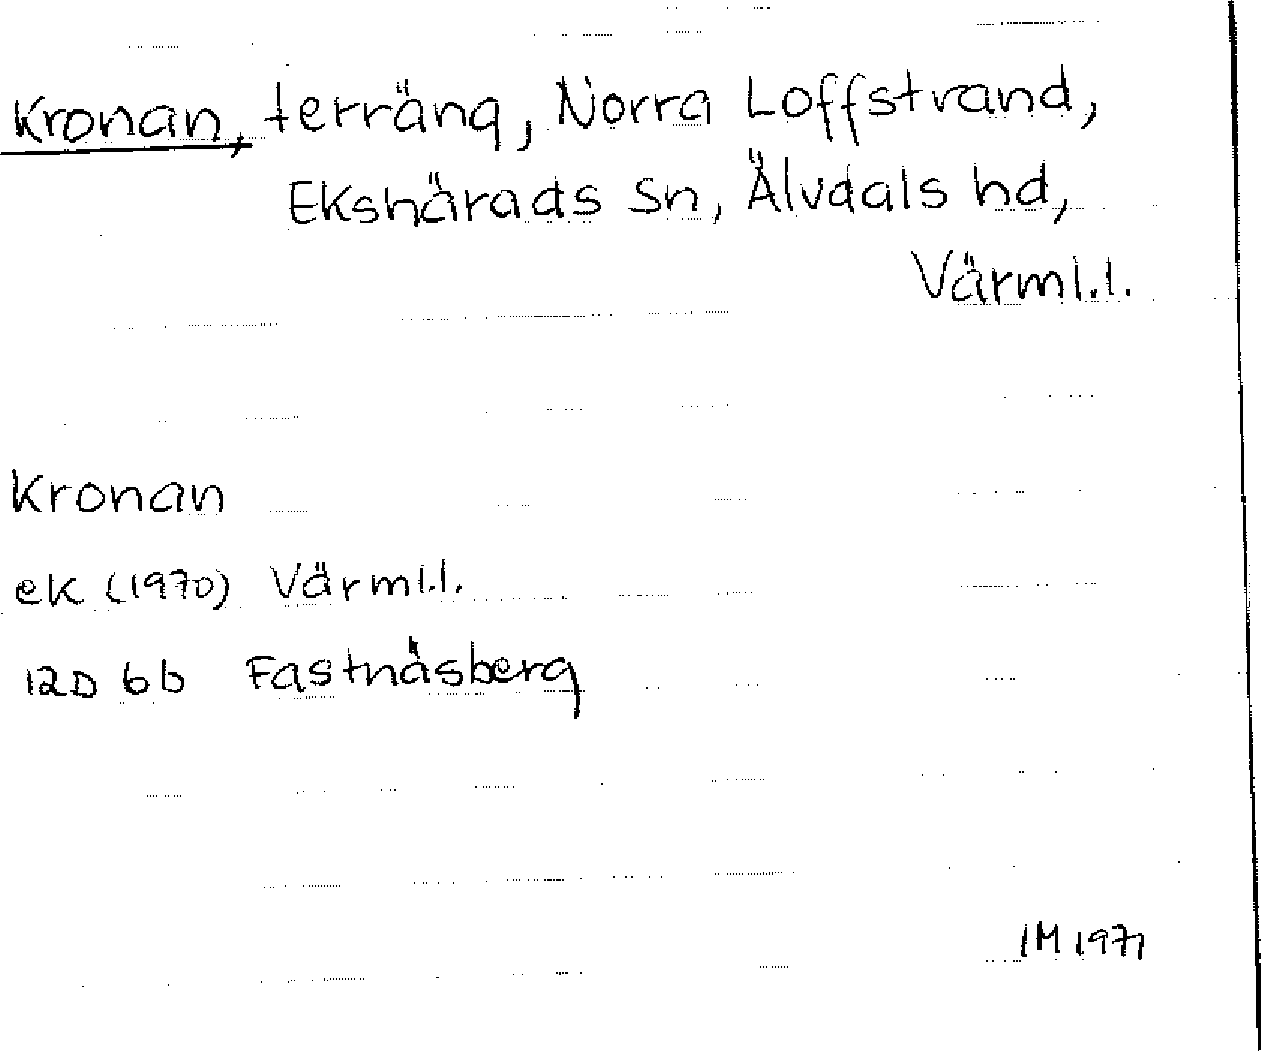 Kronan, terräng, Norra Loffstrand,
Ekshärads Sn, Älvdals hd,
Värml.l.
Kronan
ek (1970) Värml.l.
12D 6b Fastnäsberg
IM 1971